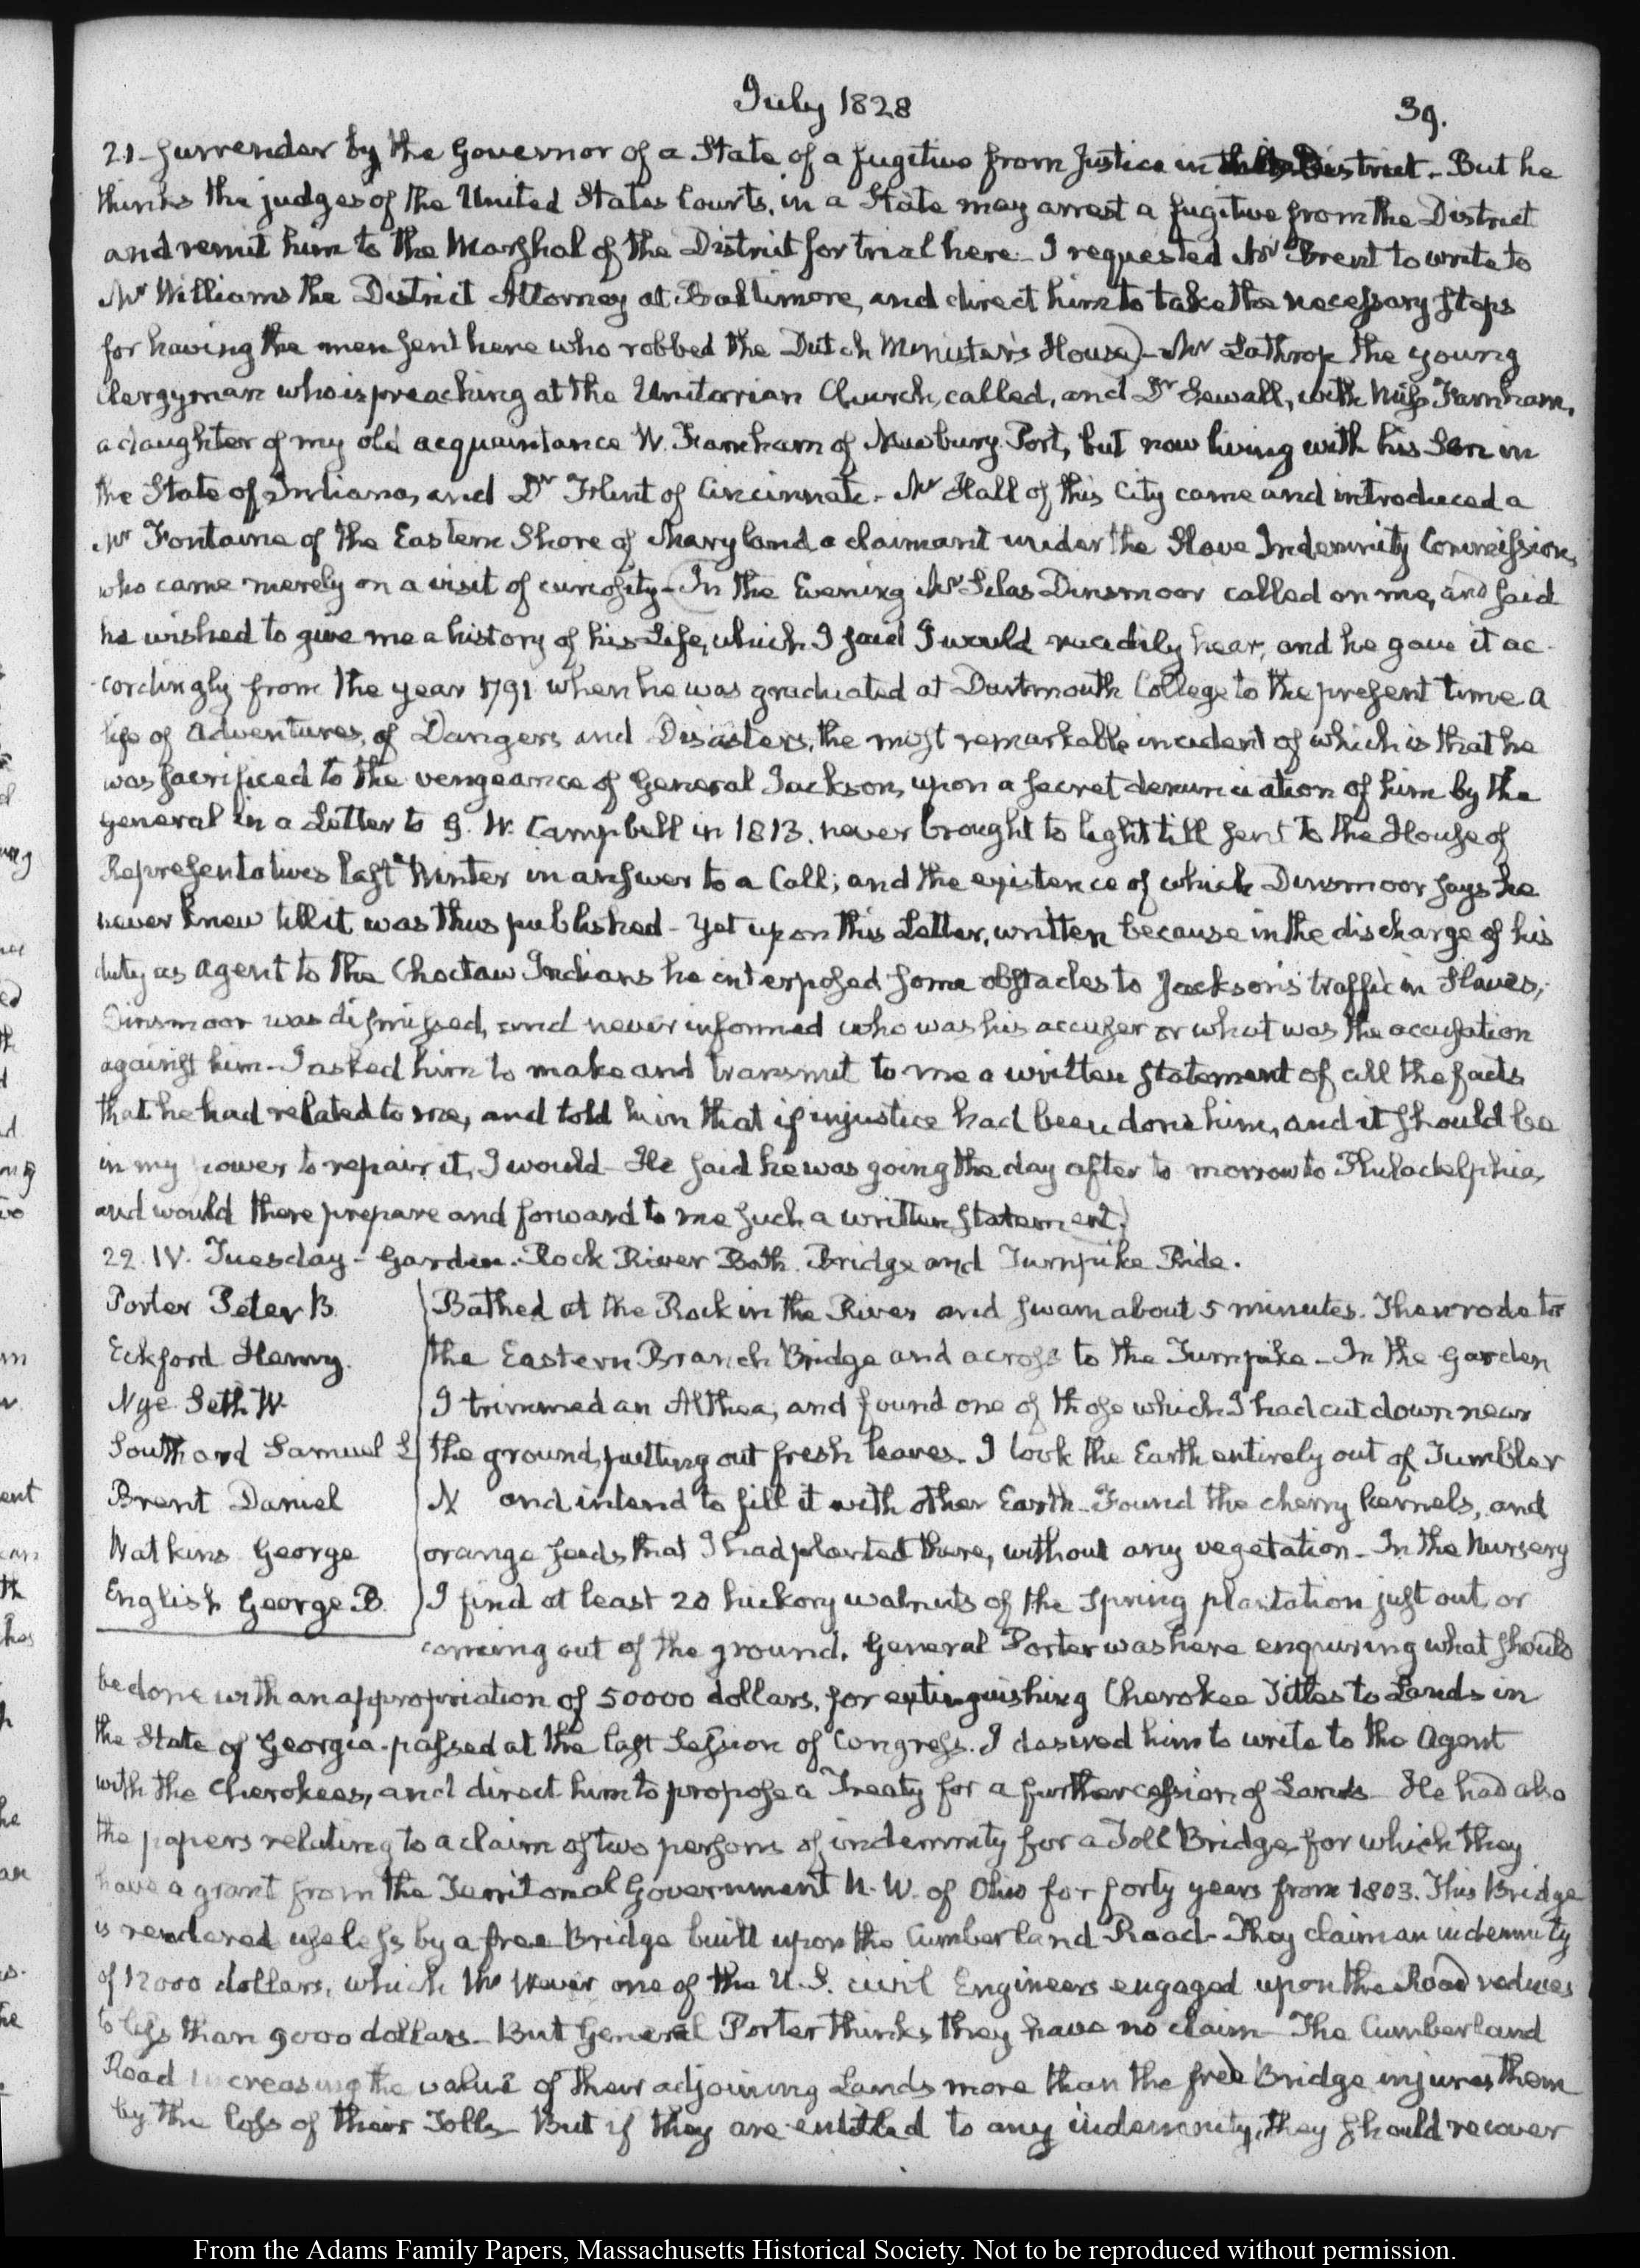 July 1828
39.
21. Surrender by the Governor of a State of a fugitive from Justice in this District. But he
thinks the judges of the United States Courts, in a State may arrest a fugitive from the District
and remit him to the Marshal of the District for trial here. I requested Mr Brent to write to
Mr Williams the District Attorney at Baltimore, and direct him to take the necessary steps
for having the men sent here who robbed the Dutch Minister's House)- Mr Lathrop the young
Clergyman who is preaching at the Unitarian Church, called, and Dr Sewall, with Miss Farnham,
a daughter of my old acquaintance W. Farnham of Newbury-Port, but now living with his Son in
the State of Indiana, and Dr Flint of Cincinnati. Mr Hall of this City came and introduced a
Mr Fontaine of the Eastern Shore of Maryland a claimant under the Slave Indemnity Commission,
who came merely on a visit of curiosity- (In the Evening Mr Silas Dinsmoor called on me, and said
he wished to give me a history of his Life, which I said I would readily hear, and he gave it ac-
cordingly from the year 1791 when he was graduated at Dartmouth College to the present time. A
life of Adventures, of Dangers and Disasters, the most remarkable incident of which is that he
was sacrificed to the vengeance of General Jackson, upon a secret denunciation of him by the
General in a Letter to G. W. Campbell in 1813. never brought to light till sent to the House of
Representatives last Winter in answer to a Call; and the existence of which Dinsmoor says he
never knew till it was thus published- Yet upon this Letter, written because in the discharge of his
duty as Agent to the Choctaw Indians he interposed some obstacles to Jackson's traffic in Slaves,
Dinsmoor was dismissed, and never informed who was his accuser or what was the accusation
against him- I asked him to make and transmit to me a written statement of all the facts
that he had related to me, and told him that if injustice had been done him, and it should be
in my power to repair it, I would- He said he was going the day after to morrow to Philadelphia,
and would there prepare and forward to me such a written statement.)
22. IV. Tuesday- Garden. Rock River Bath. Bridge and Turnpike Ride.
Porter Peter B.
Eckford Henry.
Nye Seth W.
Southard Samuel L
Brent Daniel
Watkins George
English George B.
Bathed at the Rock in the River and swam about 5 minutes. Then rode to
the Eastern Branch Bridge and across to the Turnpike- In the Garden
I trimmed an Althea, and found one of those which I had cut down near
the ground, putting out fresh leaves. I took the Earth entirely out of Tumbler
N and intend to fill it with other Earth. Found the cherry kernels, and
orange seeds that I had planted there, without any vegetation- In the Nursery
I find at least 20 hickory walnuts of the Spring plantation just out, or
coming out of the ground. General Porter was here enquiring what should
be done with an appropriation of 50000 dollars, for extinguishing Cherokee Titles to Lands in
the State of Georgia, passed at the last Session of Congress. I desired him to write to the Agent
with the Cherokees, and direct him to propose a Treaty for a further cession of Lands- He had also
the papers relating to a claim of two persons of indemnity for a Toll Bridge for which they
have a grant from the Territorial Government N. W. of Ohio for forty years from 1803. This Bridge
is rendered useless by a free Bridge built upon the Cumberland Road- They claim an indemnity
of 12000 dollars, which Mr Wever one of the U.S. civil Engineers engaged upon the Road reduces
to less than 9000 dollars- But General Porter thinks they have no claim- The Cumberland
Road increasing the value of their adjoining Lands more than the free Bridge injures them
by the loss of their Tolls- But if they are entitled to any indemnity, they should recover
From the Adams Family Papers, Massachusetts Historical Society. Not to be reproduced without permission.